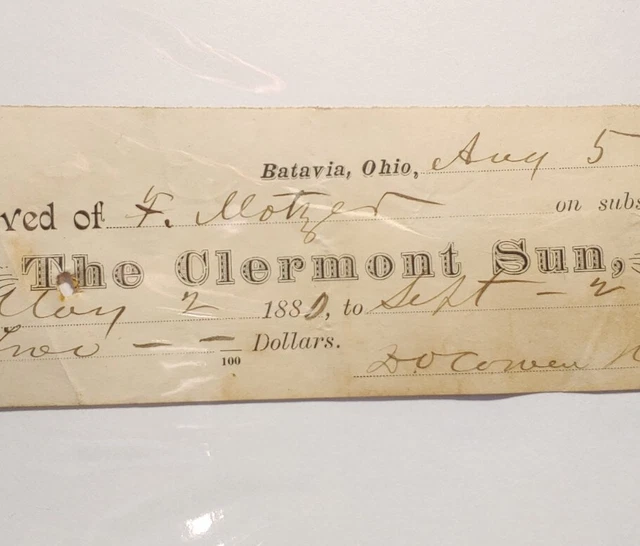 Batavia, Ohio, Aug 5
ved of F. Motzer on subs
The Clermont Sun,
May 2 188, to Sept - 2
- - /100 Dollars.
D O Cowen